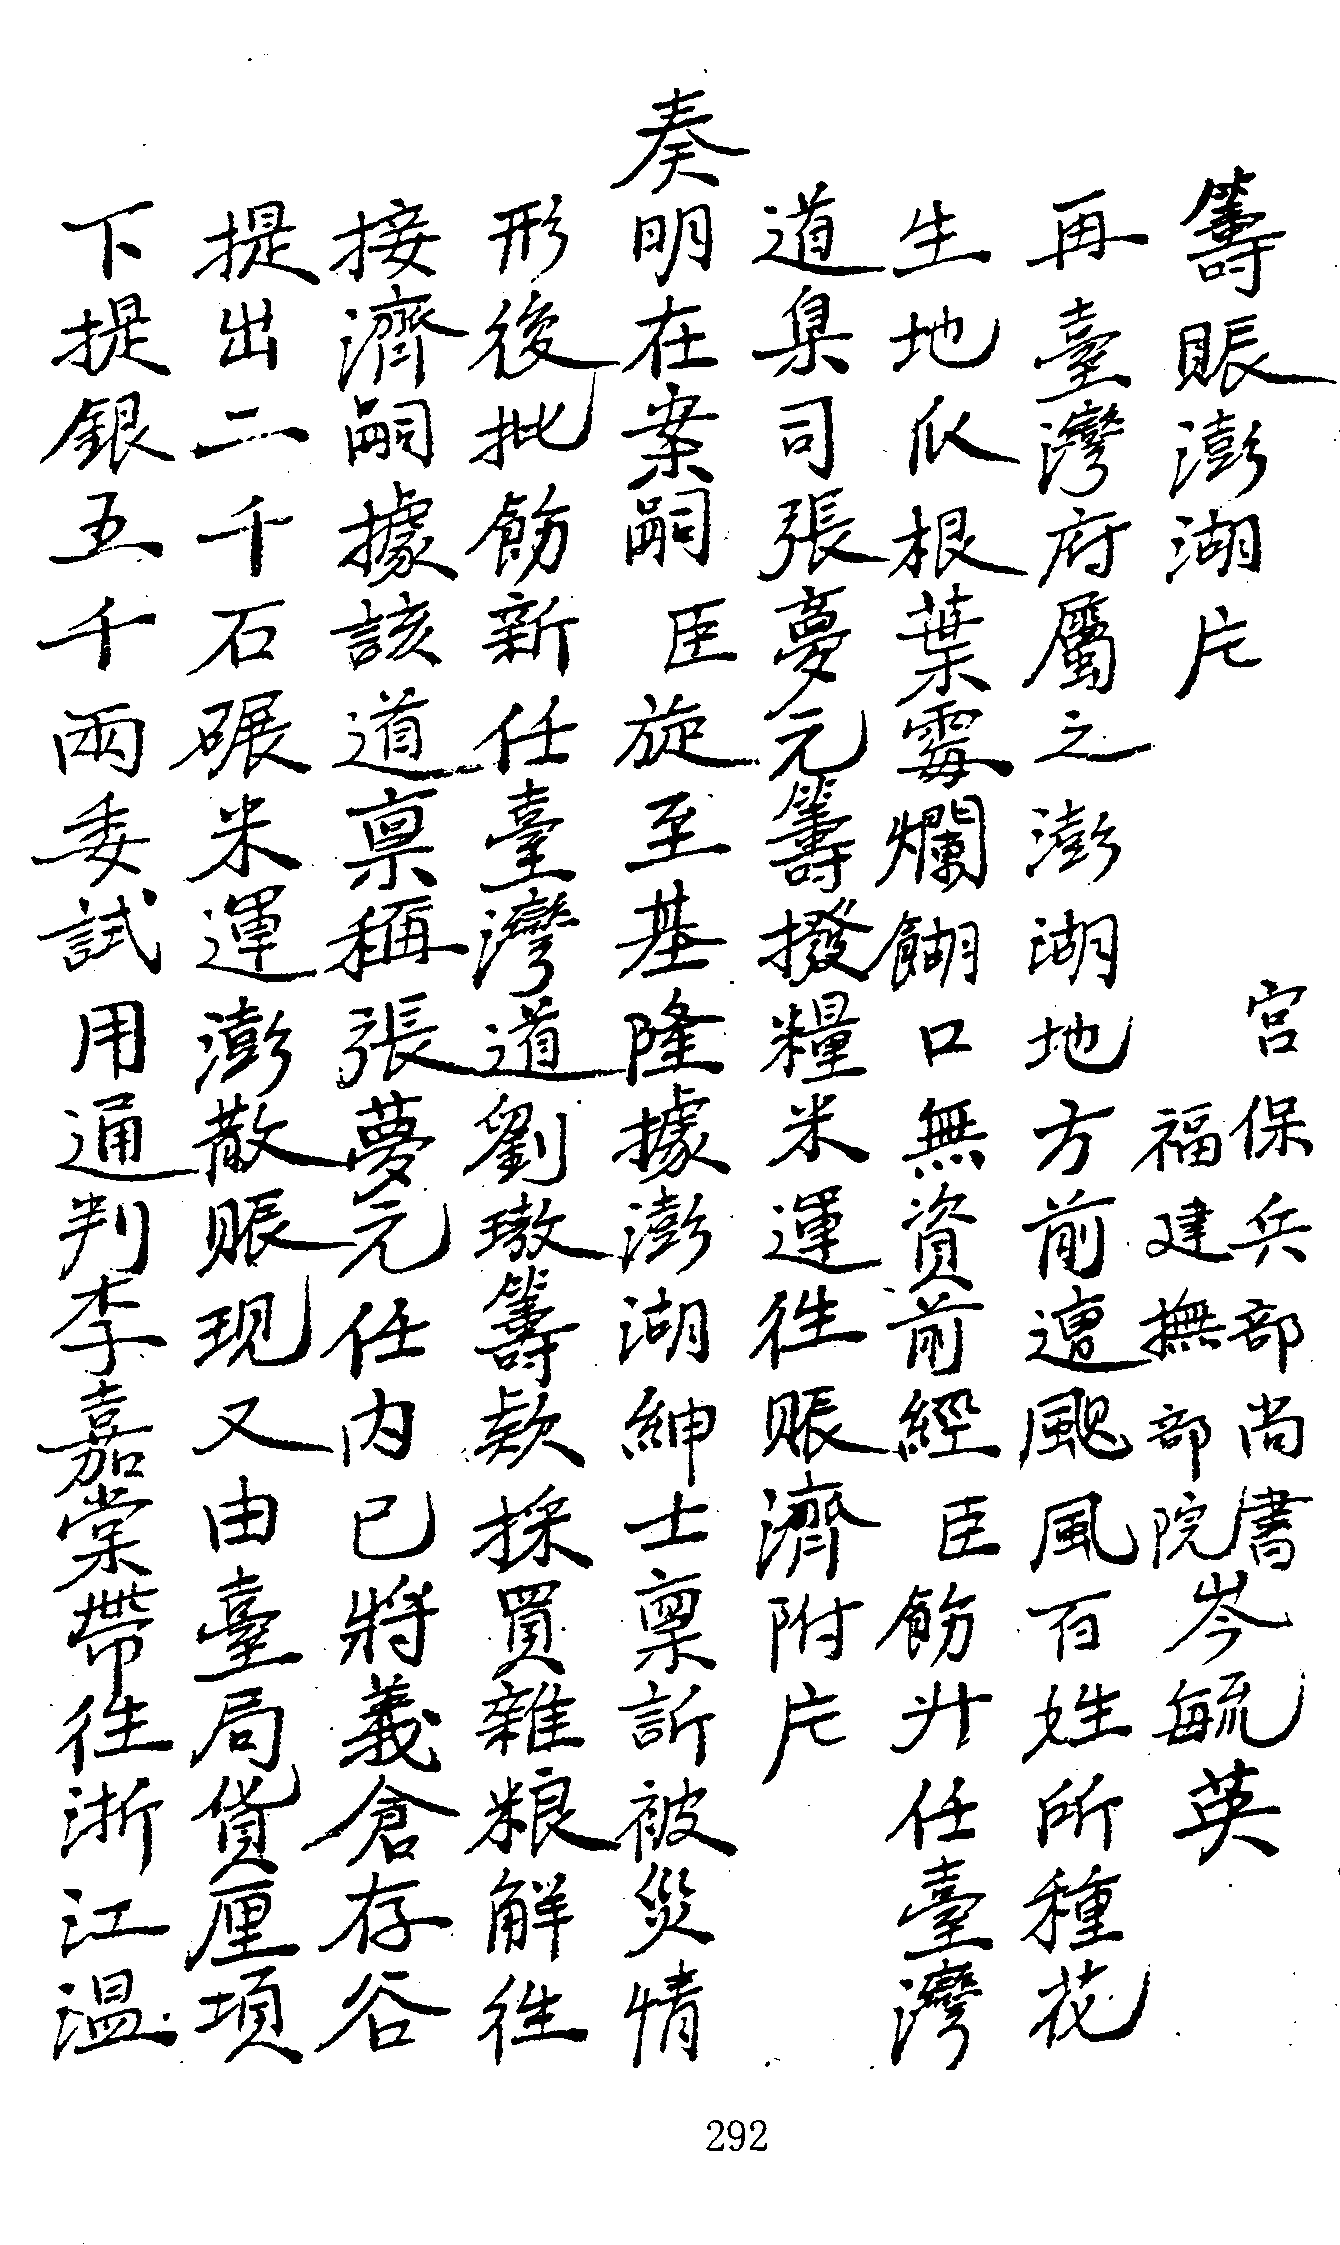 籌賬澎湖片
宮保兵部尚書
福建撫部院
岑毓英
再臺灣府屬之澎湖地方前遭颶風百姓所種花
生地瓜根葉霉爛餬口無資前經臣飭升任臺灣
道臬司張夢元籌撥糧米運徃賬濟附片
奏明在案嗣臣旋至基隆據澎湖紳士稟訴被災情
形後批飭新任臺灣道劉璈籌欵採買雜粮解徃
接濟嗣據該道稟稱張夢元任内已將義倉存谷
提出二千石碾米運澎散賬現又由臺局貨厘項
下提銀五千兩委試用通判李嘉棠帶徃浙江温
292